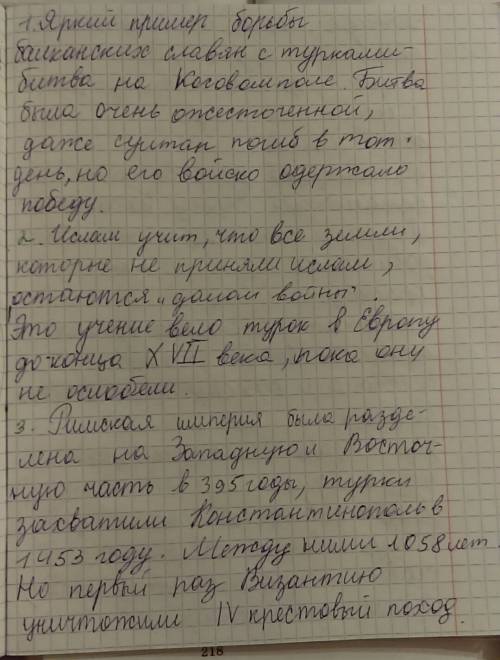 1. Яркий пример борьбы
балканских славян с турками-
битва на Косовомполе. Битва
была очень ожесточенной,
даже султан погиб в тот
день, но его войско одержало
победу.
2. Ислам учит, что все земли,
которые не приняли ислам,
остаются "домом войны".
Это учение вело турок в Европу
до конца XVII века, пока они
не ослабели.
3. Римская империя была разде-
лена на Западную и Восточ-
ную часть в 395 годы, турки
захватили Константинополь в
1453 году. Между ними 1058 лет.
Но первый раз Византию
уничтожили IV крестовый поход.
218